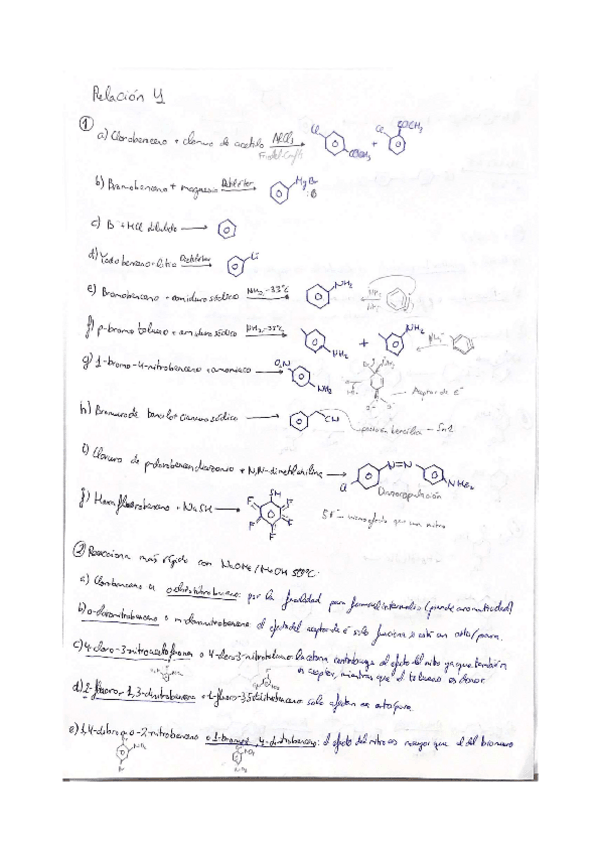 Relación 4
1
a) Clorobenceno + cloruro de acetilo AlCl3 Friedel-Crafts Cl COCH3 + Cl COCH3
b) Bromobenceno + magnesio Dietiléter MgBr : B
c) B + HCl diluido
d) Yodobenceno + litio Dietiléter Li
e) Bromobenceno + amiduro sódico NH3 -33ºC NH2
f) p-bromo tolueno + amiduro sódico NH3 -33ºC NH2 + NH2
g) 1-bromo-4-nitrobenceno + amoniaco O2N NH2 Aceptor de e-
h) Bromuro de bencilo + cianuro sódico CN
i) Cloruro de p-clorobencenodiazonio + N,N-dimetilanilina Cl N=N NMe2
Diazocopulación
j) Hexafluorobenceno + NaSH SH F F F F F
2 Reacciona más rápido con NaOMe/MeOH 50ºC.
a) Clorobenceno u o-cloronitrobenceno: por la facilidad para formar el intermedio (pierde aromaticidad)
b) o-cloronitrobenceno o m-cloronitrobenceno: el efecto del aceptor de e- solo funciona si está en orto/para.
c) 4-cloro-3-nitroacetofenona o 4-cloro-3-nitrotolueno: la cetona contribuye al efecto del nitro ya que también
es aceptor, mientras que el tolueno es donor.
d) 2-fluoro-1,3-dinitrobenceno o 1-fluoro-3,5-dinitrobenceno solo afectan en orto/para.
e) 1,4-dibromo-2-nitrobenceno o 1-bromo-2,4-dinitrobenceno: el efecto del nitro es mayor que el del bromuro